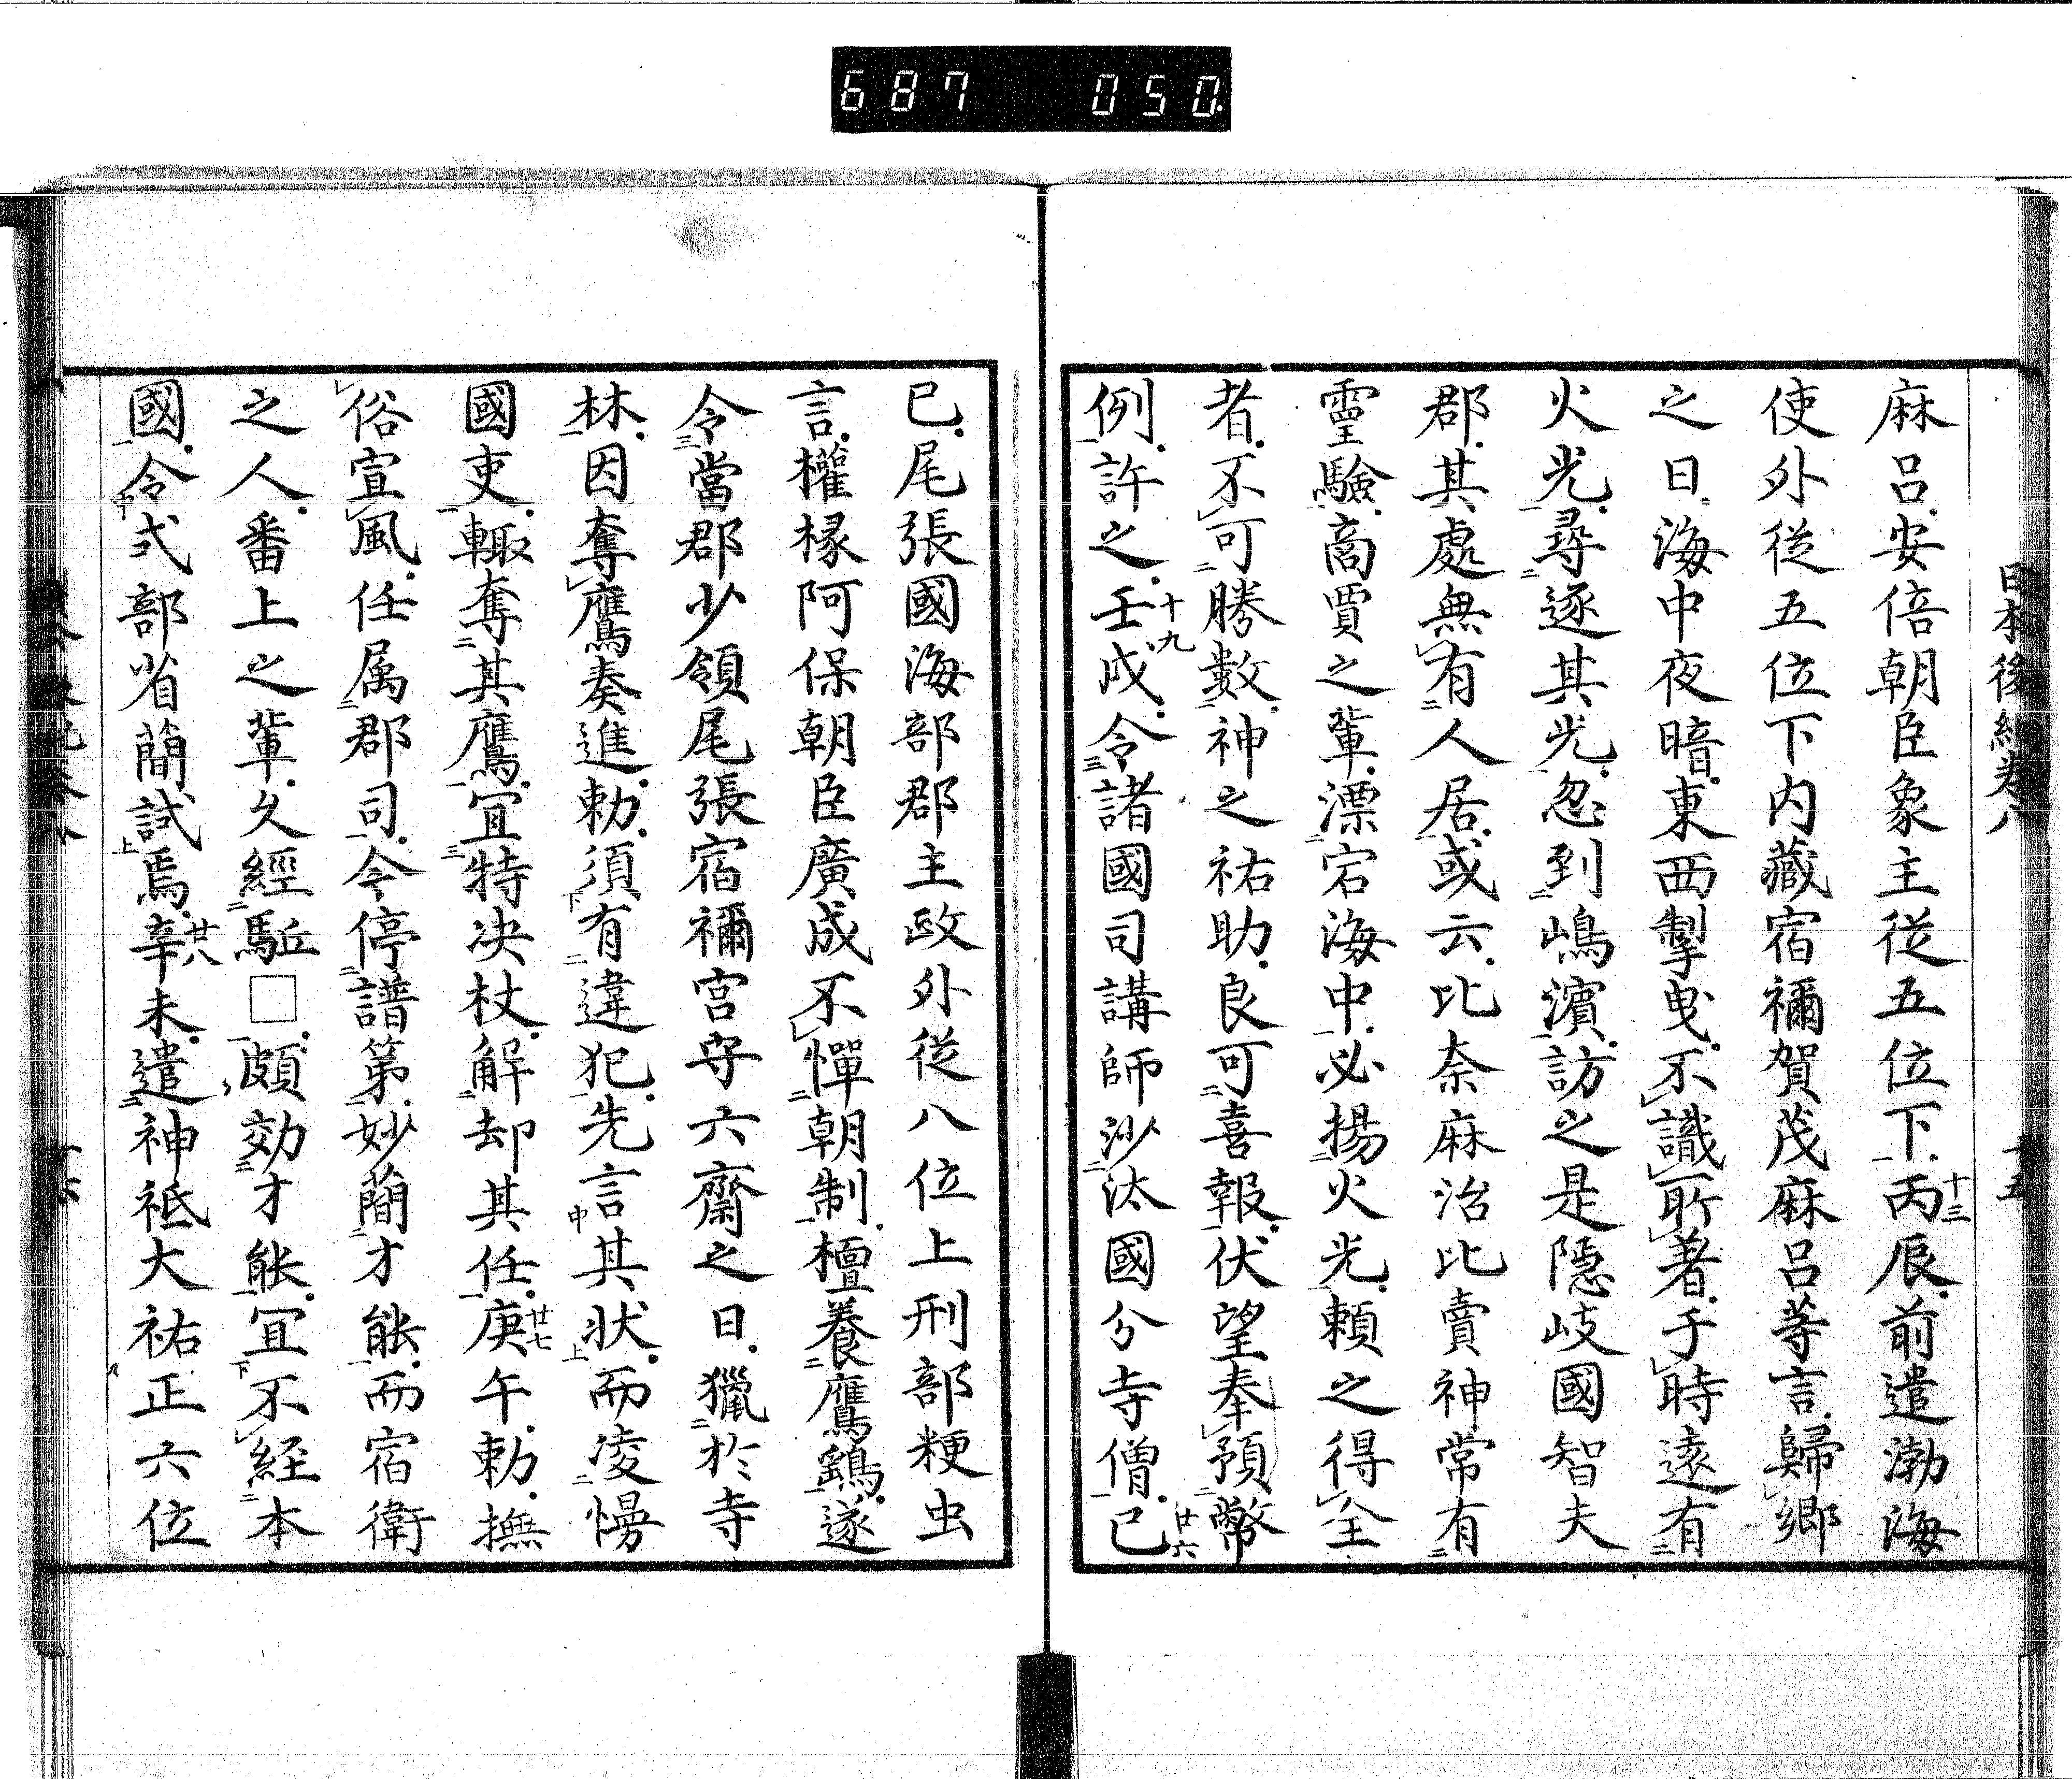 687 050
日本後紀卷八 十五
麻呂安倍朝臣象主從五位下丙辰前遣渤海
使外從五位下内藏宿禰賀茂麻呂等言歸郷
之日海中夜暗東西掣曳不識所著于時遠有
火光尋逐其光忽到嶋濵訪之是隱岐國智夫
郡其處無有人居或云比奈麻治比賣神常有
靈驗商賈之輩漂宕海中必揚火光頼之得全
者不可勝數神之祐助良可喜報伏望奉預幣
例許之壬戌令諸國司講師沙汰國分寺僧己
十三
十九
廿六
巳尾張國海部郡主政外從八位上刑部粳虫
言權掾阿保朝臣廣成不憚朝制檀養鷹鷂遂
令當郡少領尾張宿禰宮守六齋之日獵於寺
林因奪鷹奏進勅須有違犯先言其状而凌慢
國吏輙奪其鷹冝特决杖解却其任庚午勅撫
俗宣風任属郡司令停譜第妙蕳才能而宿衛
之人番上之輩久經駈□頗効才能冝不経本
國令式部省蕳試焉辛未遣神祇大祐正六位
廿七
廿八